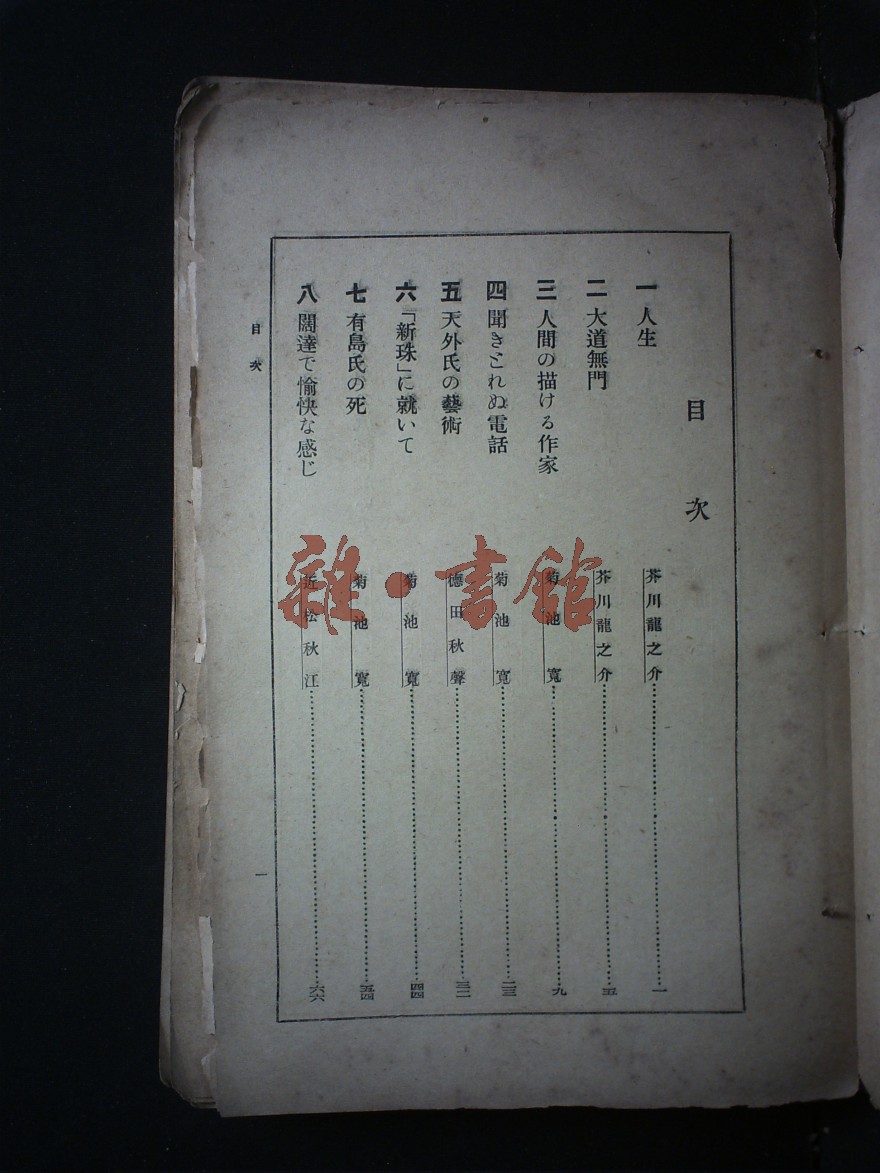 目次
一 人生 芥川龍之介 一
二 大道無門 芥川龍之介 五
三 人間の描ける作家 菊池寬 九
四 聞きとれぬ電話 菊池寬 二三
五 天外氏の藝術 德田秋聲 三二
六 「新珠」に就いて 菊池寬 四四
七 有島氏の死 菊池寬 五四
八 闊達で愉快な感じ 近松秋江 六六
目次
一
雜·書館